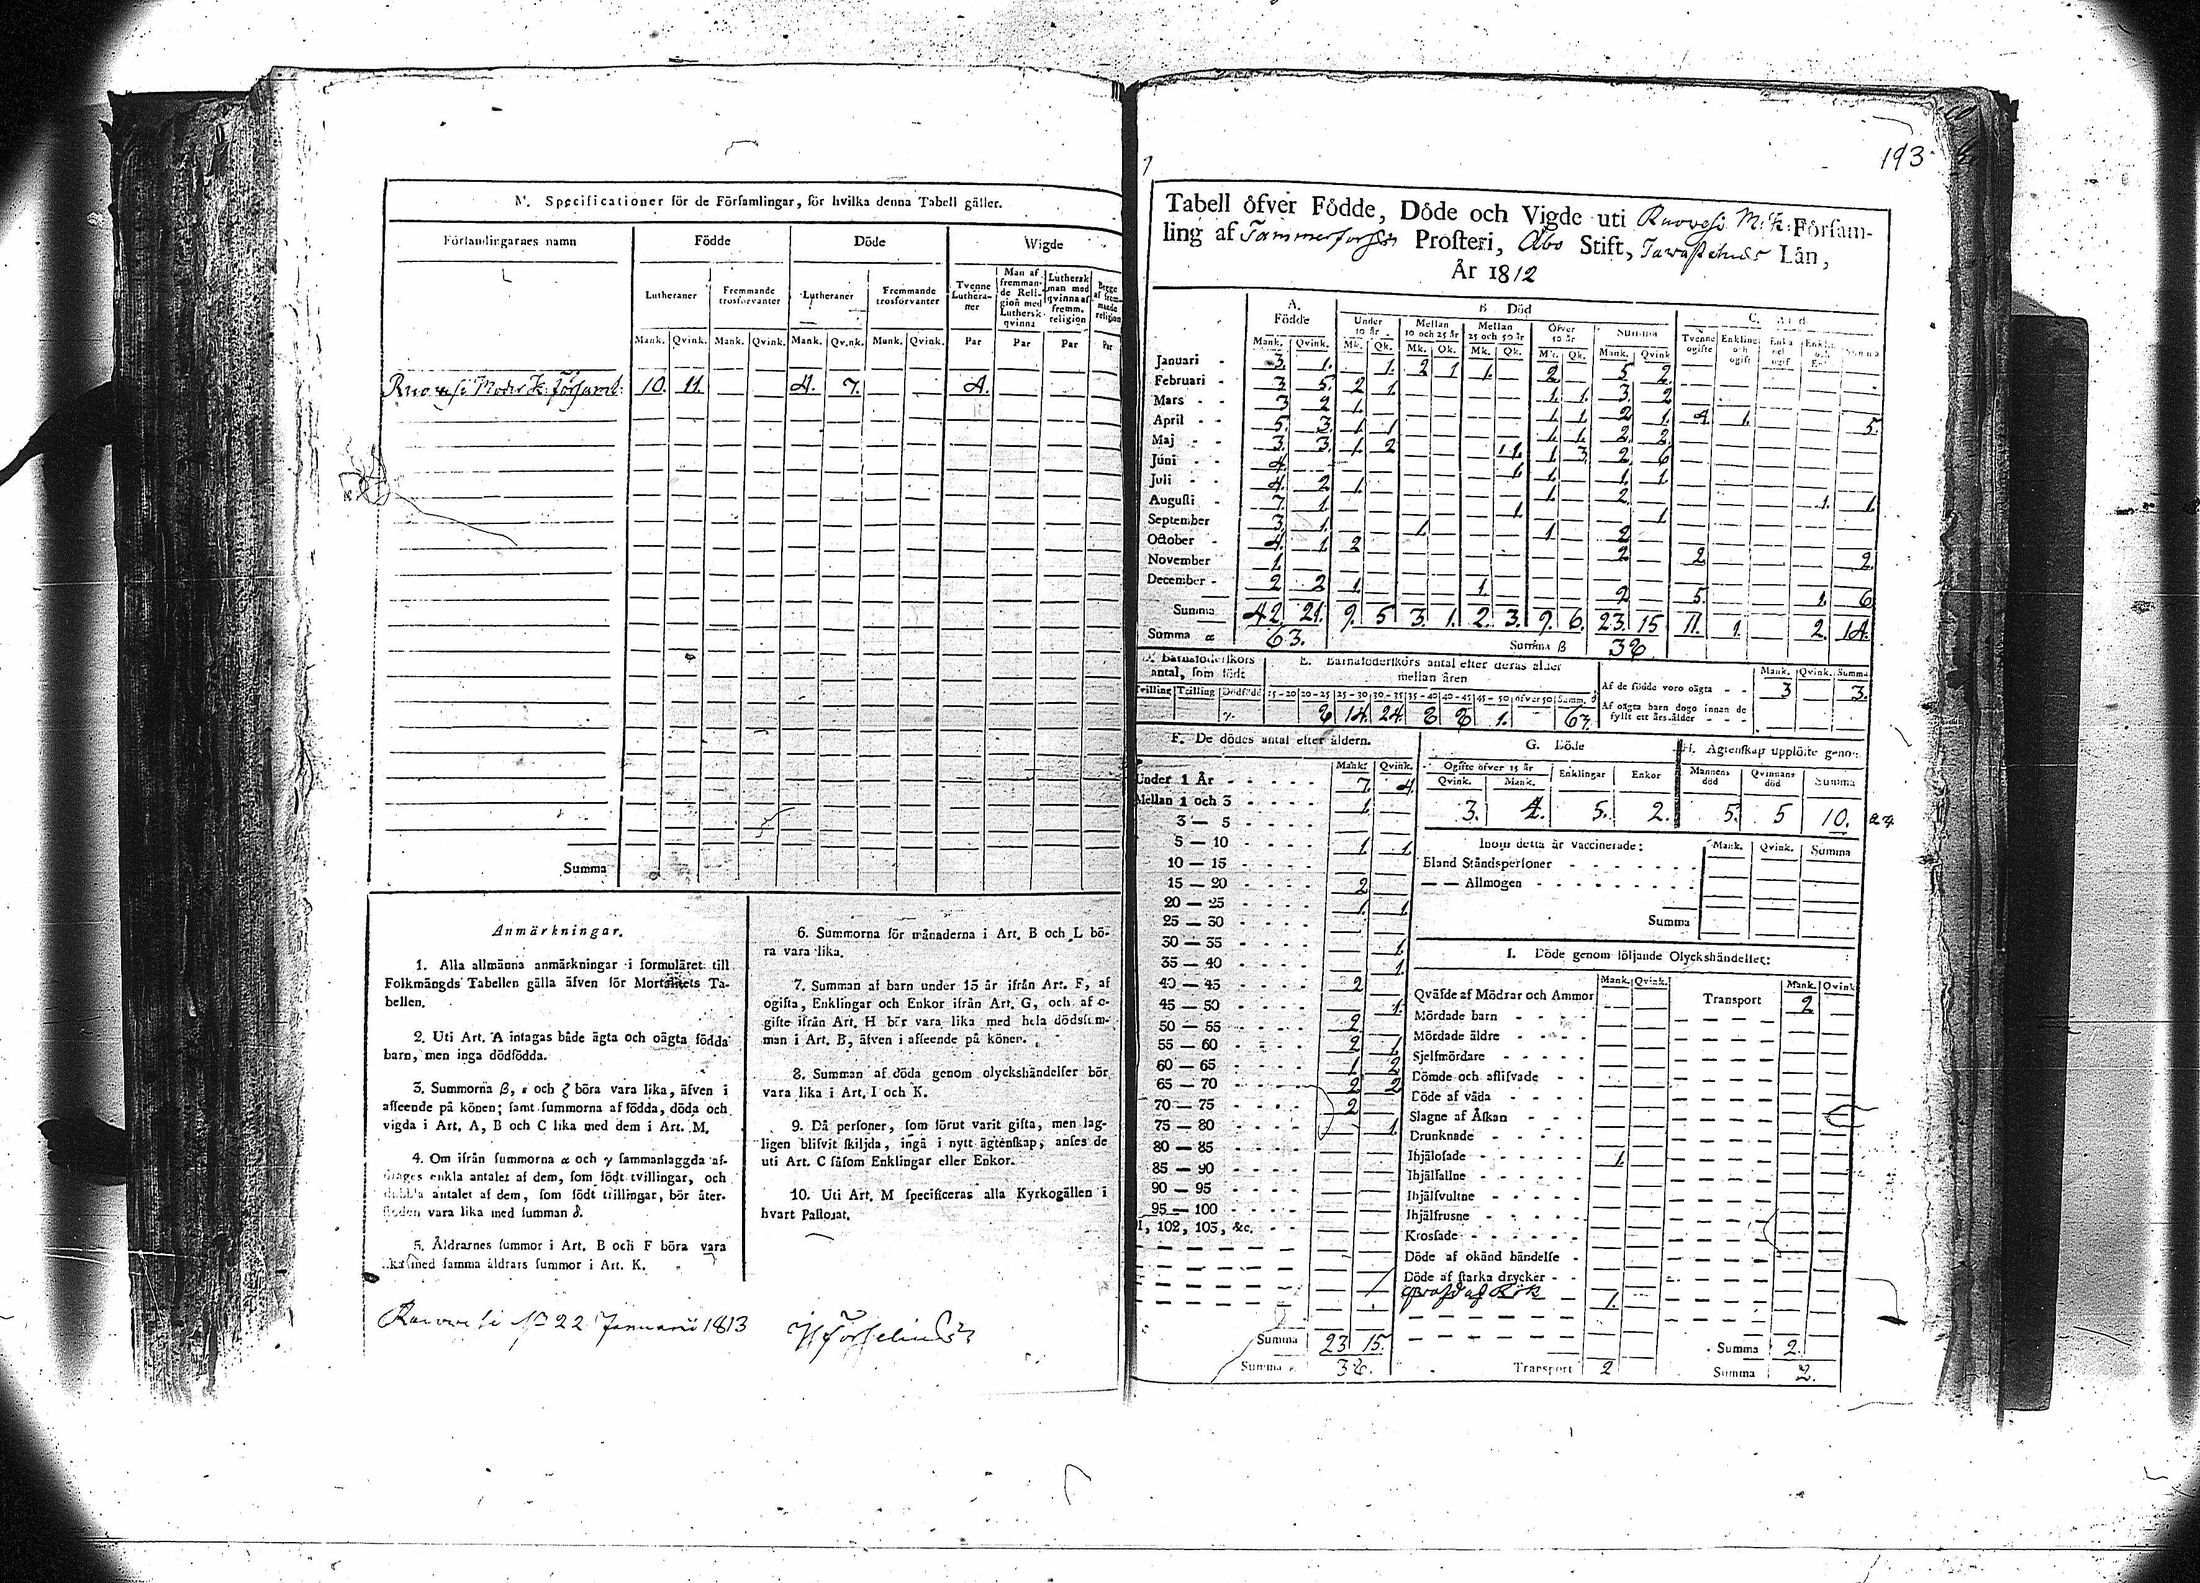 M. Specificationer för de Församlingar, för hvilka denna Tabell gäller.
Församlingarnes namn Födde Döde Wigde
Lutheraner Fremmande trosförvanter Lutheraner Fremmande trosförvanter Tvenne Lutheraner Man af fremmande Religion med Luthersk qvinna Luthersk man med qvinna af fremm. religion Begge af fremmande religion
Mank. Qvink. Mank. Qvink. Mank. Qvink. Mank. Qvink. Par Par Par Par
Ruovesi Moder K: Församl: 10. 11. 4. 7. 4.
Summa
Anmärkningar.
1. Alla allmänna anmärkningar i formuläret till
Folkmängds Tabellen gälla äfven för Mortalitets Ta-
bellen.
2. Uti Art. A intagas både ägta och oägta födda
barn, men inga dödfödda.
3. Summorna β, ε och ζ böra vara lika, äfven i
afseende på könen; samt summorna af födda, döda och
vigda i Art. A, B och C lika med dem i Art. M.
4. Om ifrån summorna α och γ sammanlaggda af-
drages enkla antalet af dem, som födt tvillingar, och
dubbla antalet af dem, som födt trillingar, bör åter-
stoden vara lika med summan δ.
5. Åldrarnes summor i Art. B och F böra vara
lika med samma åldrars summor i Art. K.
6. Summorna för månaderna i Art. B och L bö-
ra vara lika.
7. Summan af barn under 15 år ifrån Art. F, af
ogifta, Enklingar och Enkor ifrån Art. G, och af o-
gifte ifrån Art. H bör vara lika med hela dödssum-
man i Art. B, äfven i afseende på könen.
8. Summan af döda genom olyckshändelser bör
vara lika i Art. I och K.
9. Då personer, som förut varit gifta, men lag-
ligen blifvit skiljda, ingå i nytt ägtenskap, anses de
uti Art. C såsom Enklingar eller Enkor.
10. Uti Art. M specificeras alla Kyrkogällen i
hvart Pastorat.
Ruovesi 22 Januarii 1813
193
Tabell öfver Födde, Döde och Vigde uti Ruovesi M: K: Försam-
ling af Tammerfors Prosteri, Åbo Stift, Tawastehus Län,
År 1812
A. Födde B. Död C.
Under 10 år Mellan 10 och 25 år Mellan 25 och 50 år Öfver 50 år Summa Tvenne ogifte Enkling och ogift
Mank. Qvink. Mk. Qk. Mk. Qk. Mk. Qk. Mk. Qk. Mank. Qvink
Januari 3. 1. 1. 2 1 1. 2 5 2.
Februari 3 5. 2 1. 1. 1. 3 2
Mars 3 2 1. 1. 1. 2 1. 4 1. 5.
April 5. 3. 1. 1 1. 1. 2 2.
Maj 3. 3. 1. 2 1. 1 3 2 6
Juni 4. 1. 1. 1. 1
Juli 4. 2 1. 1. 2. 1. 1.
Augusti 7. 1. 1. 1.
September 3. 1. 1. 1 2
October 4. 1. 2 2 2 2
November 1.
December 2 2 1. 1. 2 5. 1. 6
Summa 42 21. 9. 5 3. 1. 2. 3. 9. 6. 23. 15 11. 1. 2. 14.
Summa α 63. Summa β 38
D. Barnaföderskors antal, som födt E. Barnaföderskors antal efter deras ålder mellan åren
Tvilling Trilling Dödfödd 15-20 20-25 25-30 30-35 35-40 40-45 45-50 öfver 50 Summ. δ
8 14. 24. 8 8 1. 63.
Mank. Qvink. Summa
Af de födde voro oägta 3 3.
Af oägta barn dogo innan de
fyllt ett års ålder
F. De dödes antal efter åldern.
Mank: Qvink.
Under 1 År 7. 4.
Mellan 1 och 3 1.
3 — 5
5 — 10 1. 1.
10 — 15
15 — 20 2
20 — 25 1. 1.
25 — 30
30 — 35 1.
35 — 40 1.
40 — 45 2
45 — 50 1.
50 — 55 2.
55 — 60 2 1.
60 — 65 1 2
65 — 70 2 2
70 — 75 2
75 — 80 1.
80 — 85
85 — 90
90 — 95
95 — 100
1, 102, 103, &c.
Summa 23 15.
Summa 38.
G. Döde H. Ägtenskap upplöste genom
Ogifte öfver 15 år Enklingar Enkor Mannens död Qvinnans död Summa
Qvink. Mank.
3. 4. 5. 2. 5. 5 10.
Inom detta år vaccinerade: Mank. Qvink. Summa
Bland Ståndspersoner
— — Allmogen
Summa
I. Döde genom följande Olyckshändelser:
Mank. Qvink. Mank. Qvink
Qväfde af Mödrar och Ammor Transport 2
Mördade barn
Mördade äldre
Sjelfmördare
Dömde och aflifvade
Döde af våda
Slagne af Åskan
Drunknade
Ihjälosade 1.
Ihjälfallne
Ihjälsvultne
Ihjälfrusne
Krossade
Döde af okänd händelse
Döde af starka drycker
Qväfd af Rök 1.
Summa 2.
Transport 2 Summa 2.